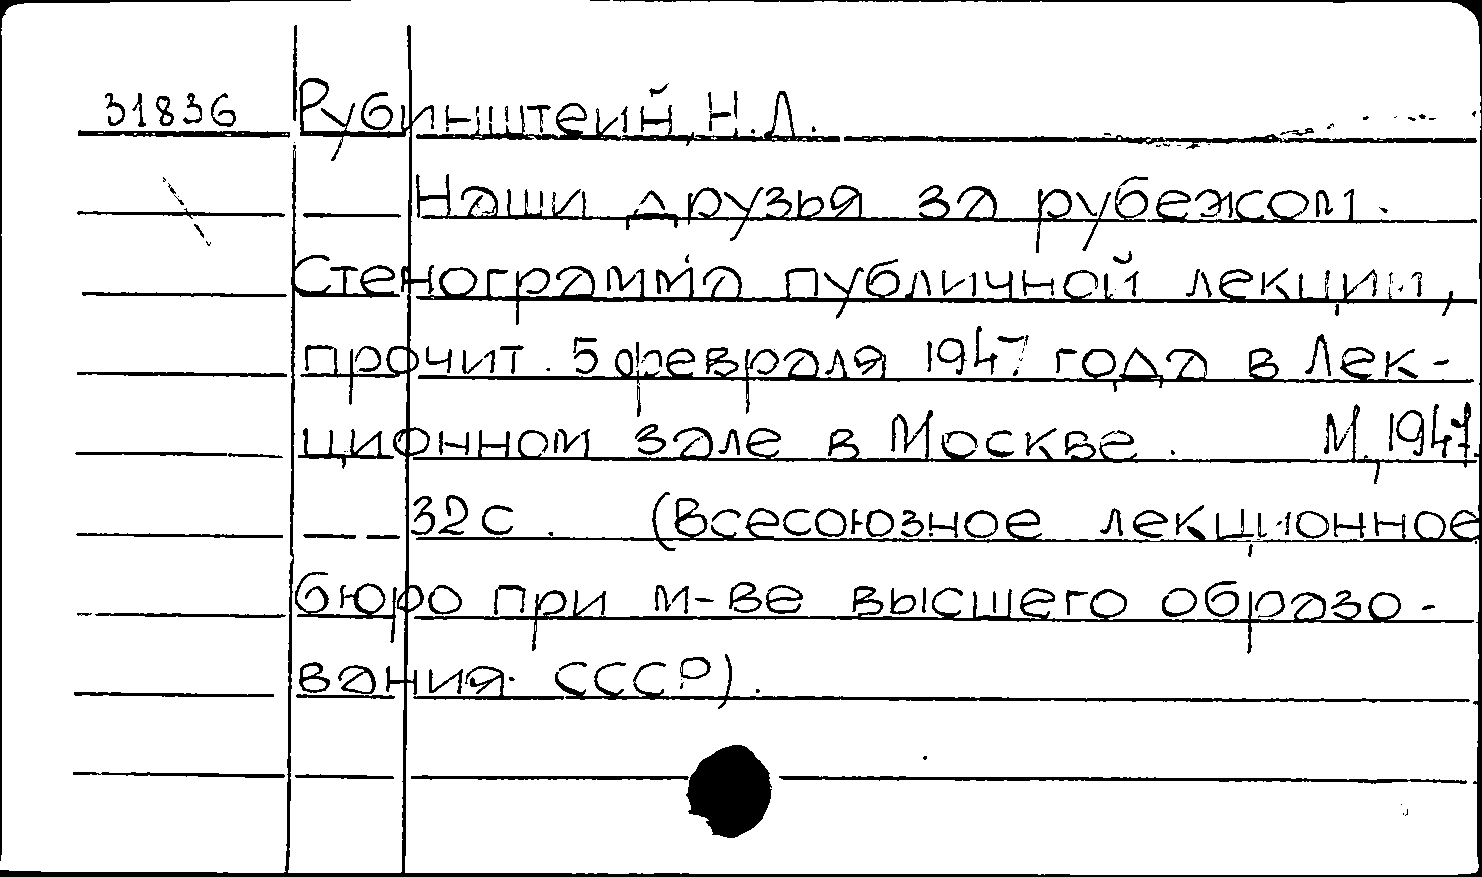 31836 Рубинштейн, Н.Л.
Наши друзья за рубежом.
Стенограмма публичной лекции,
прочит. 5 февраля 1947 года в Лек-
ционном зале в Москве. М., 1947.
32 с. (Всесоюзное лекционное
бюро при м-ве высшего образо-
вания СССР).